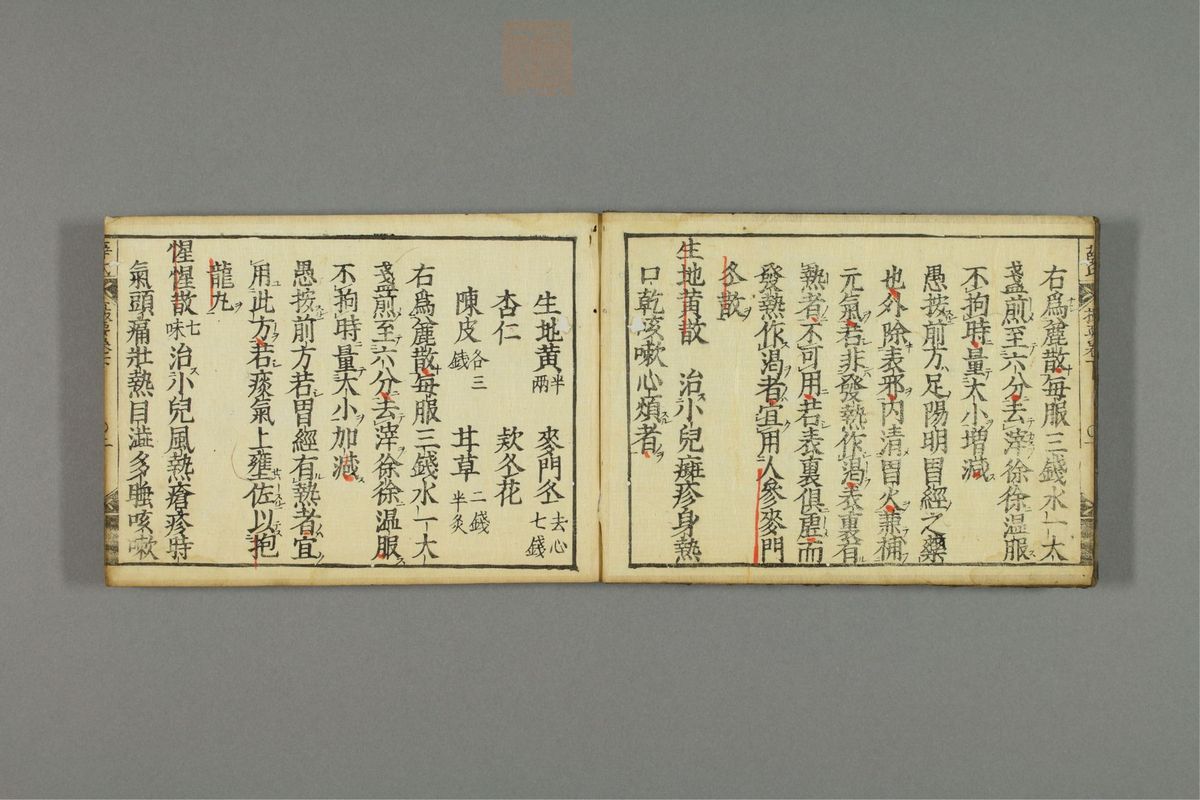 右爲麄散毎服三錢水一大
盞煎至六分去滓徐徐温服
不拘時量大小増减
愚按前方足陽明胃經之藥
也外除表邪内清胃火兼補
元氣若非發熱作渇表裏有
熱者不可用若表裏俱虚而
發熱作渇者宜用人參麥門
冬散
生地黄散　治小兒癍疹身熱
口乾咳嗽心煩者
生地黄半兩　麥門冬去心七錢
杏仁　欵冬花
陳皮各三錢　甘草二錢半炙
右爲麄散毎服三錢水一大
盞煎至六分去滓徐徐温服
不拘時量大小加减
愚按前方若胃經有熱者宜
用此方若痰氣上壅佐以抱
龍丸
惺惺散七味治小兒風熱瘡疹時
氣頭痛壯熱目澁多睡咳嗽